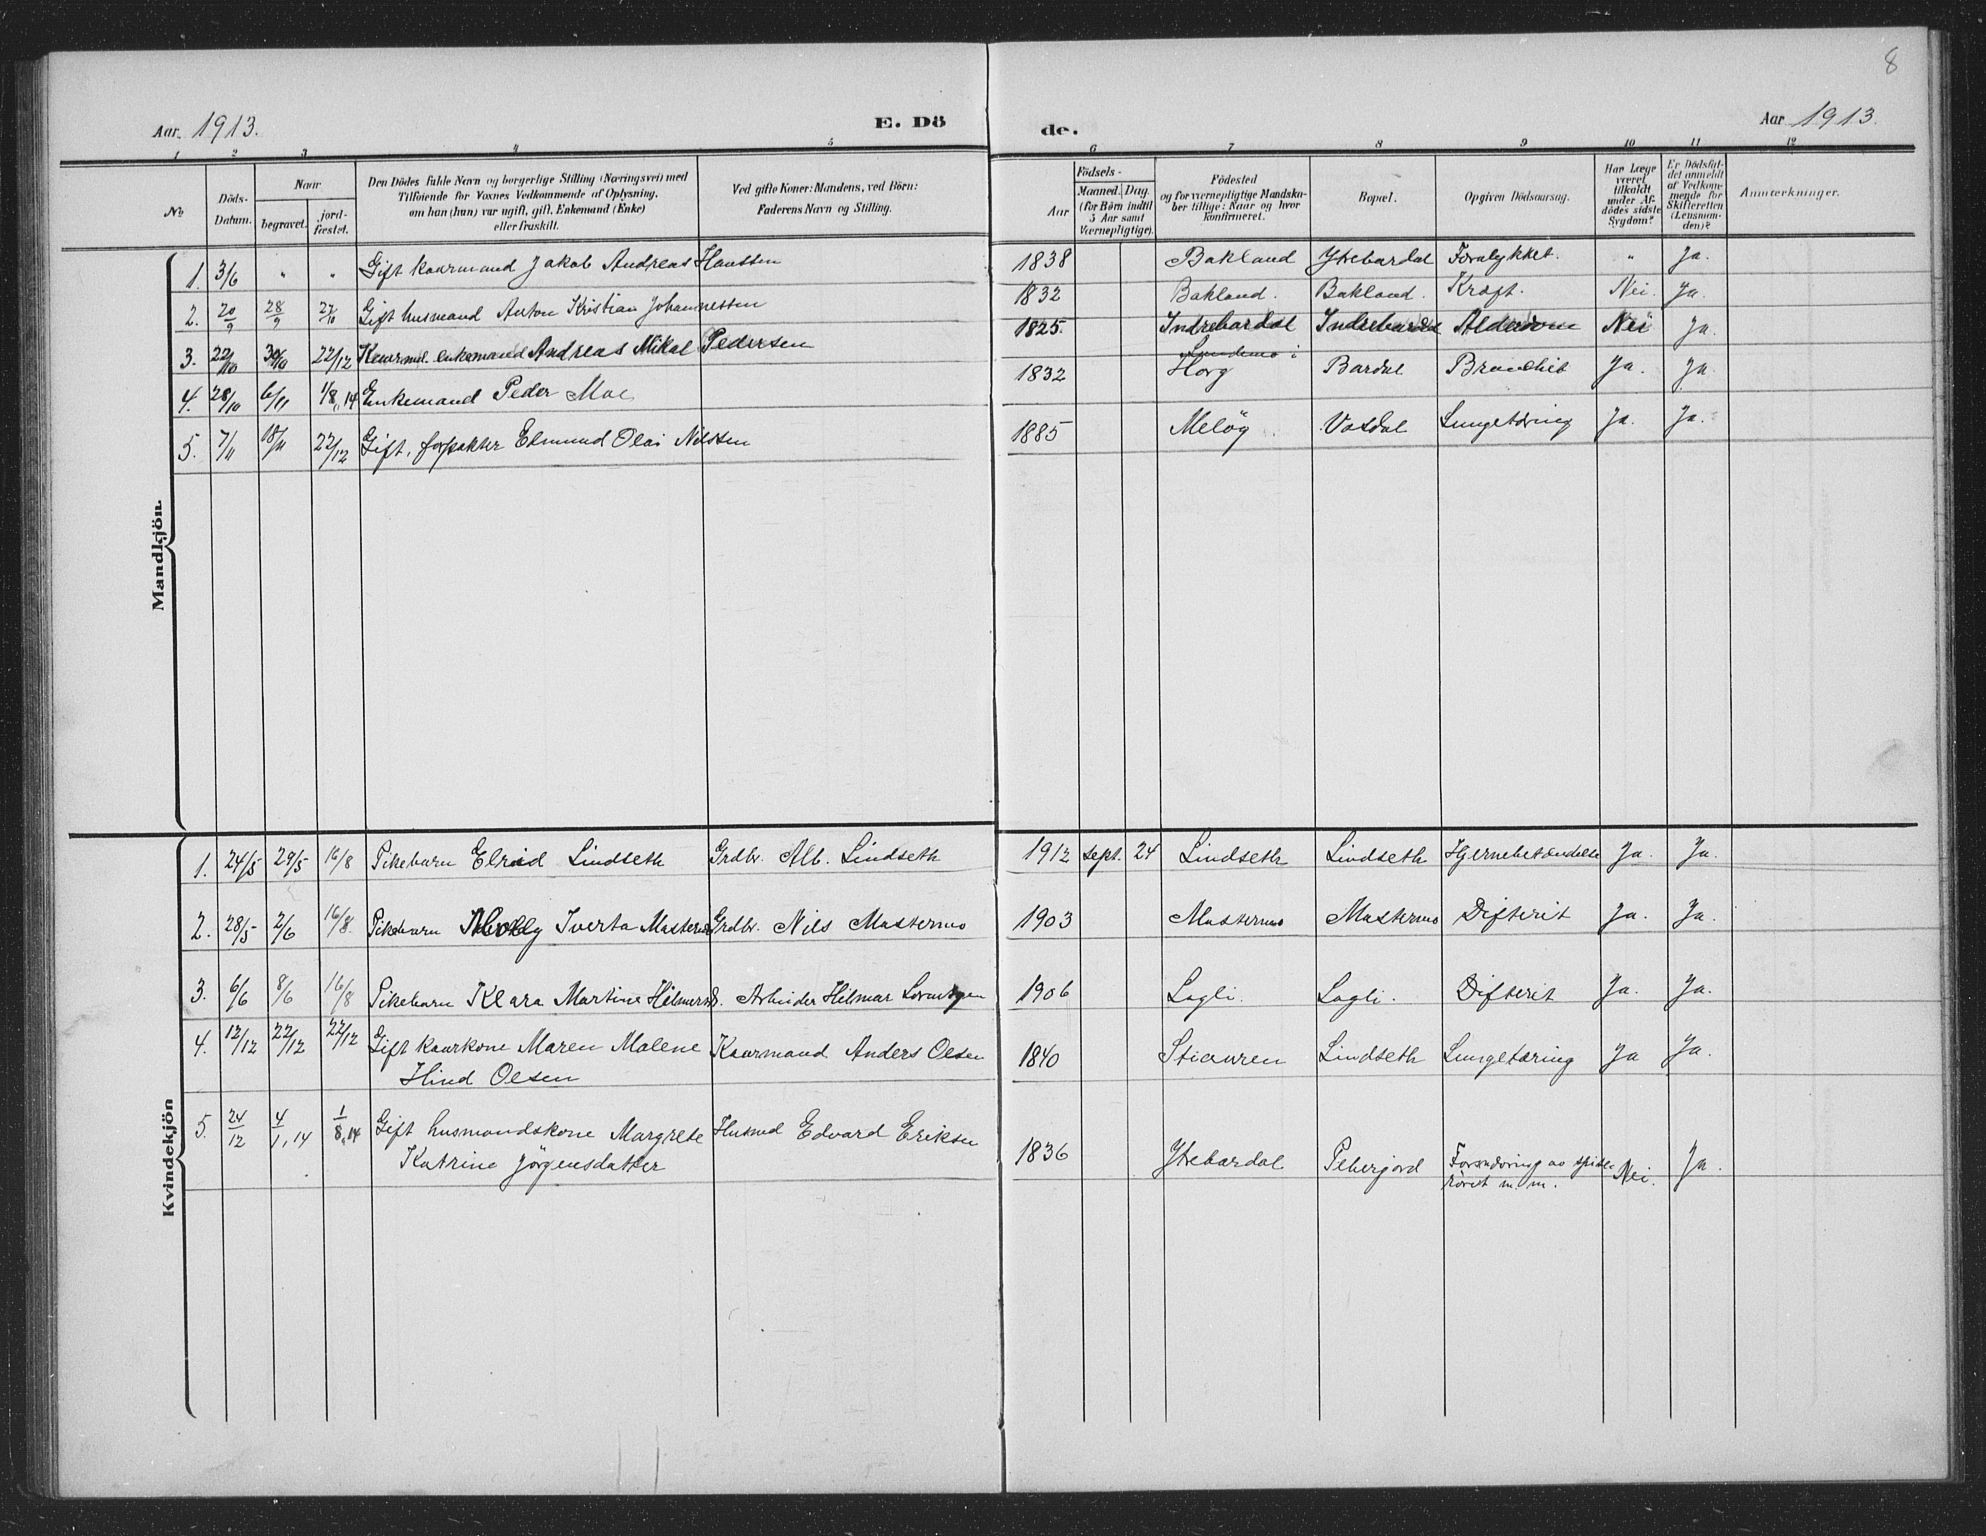 8
Aar 1913. E. Dö de. Aar 1913.
1 2 3 4 5 6 7 8 9 10 11 12
No Döds-Datum. Naar begravet. jord-fæstet. Den Dödes fulde Navn og borgerlige Stilling (Næringsvei) med Tilföiende for Voxnes Vedkommende af Oplysning, om han (hun) var ugift, gift, Enkemand (Enke) eller fraskilt. Ved gifte Koner: Mandens, ved Börn: Faderens Navn og Stilling. Födsels- Aar Maaned. Dag. (for Börn indtil 5 Aar samt Værnepligtige). Födested og for værnepligtige Mandskaber tillige: Naar og hvor konfirmeret. Bopæl. Opgiven Dödsaarsag. Har Læge været tilkaldt under Afdödes sidste Sygdom? Er Dödsfaldet anmeldt af Vedkommende for Skifteretten (Lensmanden)? Anmærkninger.
Mandkjön.
1. 3/6 " " Gift kaarmand Jakob Andreas Hanssen 1838 Bakland Ytrebardal Forulykket. " Ja.
2. 20/9 28/9 27/10 Gift husmand Anton Kristian Johannessen 1832 Bakland. Bakland. Kræft. Nei. Ja.
3. 22/10 30/10 22/12 Kaarmd. enkemand Andreas Mikal Pedersen 1825. Indrebardal Indrebardal Alderdom Nei Ja.
4. 28/10 6/11 1/8, 14 Enkemand Peder Moe 1832 Horg Bardal Bronchit Ja. Ja.
5. 7/11 18/11 22/12 Gift, forpakter Edmund Olai Nilssen 1885 Meløy. Vasdal Lungetæring Ja. Ja.
Kvindekjön
1. 24/5 29/5 16/8 Pikebarn Elrid Lindseth Grdbr. Alb. Lindseth 1912 sept. 24 Lindseth Lindseth Hjernebetændelse Ja. Ja.
2. 28/5 2/6 16/8. Pikebarn Iverta Mastermo Grdbr. Nils Mastermo 1903 Mastermo Mastermo Difterit Ja. Ja.
3. 6/6 8/6 16/8 Pikebarn Klara Martine Hilmersd. Arbeider Hilmar Lorentzen 1906 Lagli. Lagli. Difterit Ja. Ja.
4. 12/12 22/12 22/12 Gift kaarkone Maren Malene Kaarmand Anders Olsen 1840 Stiauren Lindseth Lungetæring Ja Ja.
Hind Olsen
5. 24/12 4/1, 14 1/8, 14 Gift husmandskone Margrete Husmd Edvard Eriksen 1836 Ytrebardal Peberjord Forsnævring av spise- Nei. Ja.
Katrine Jørgensdatter røret m. m.